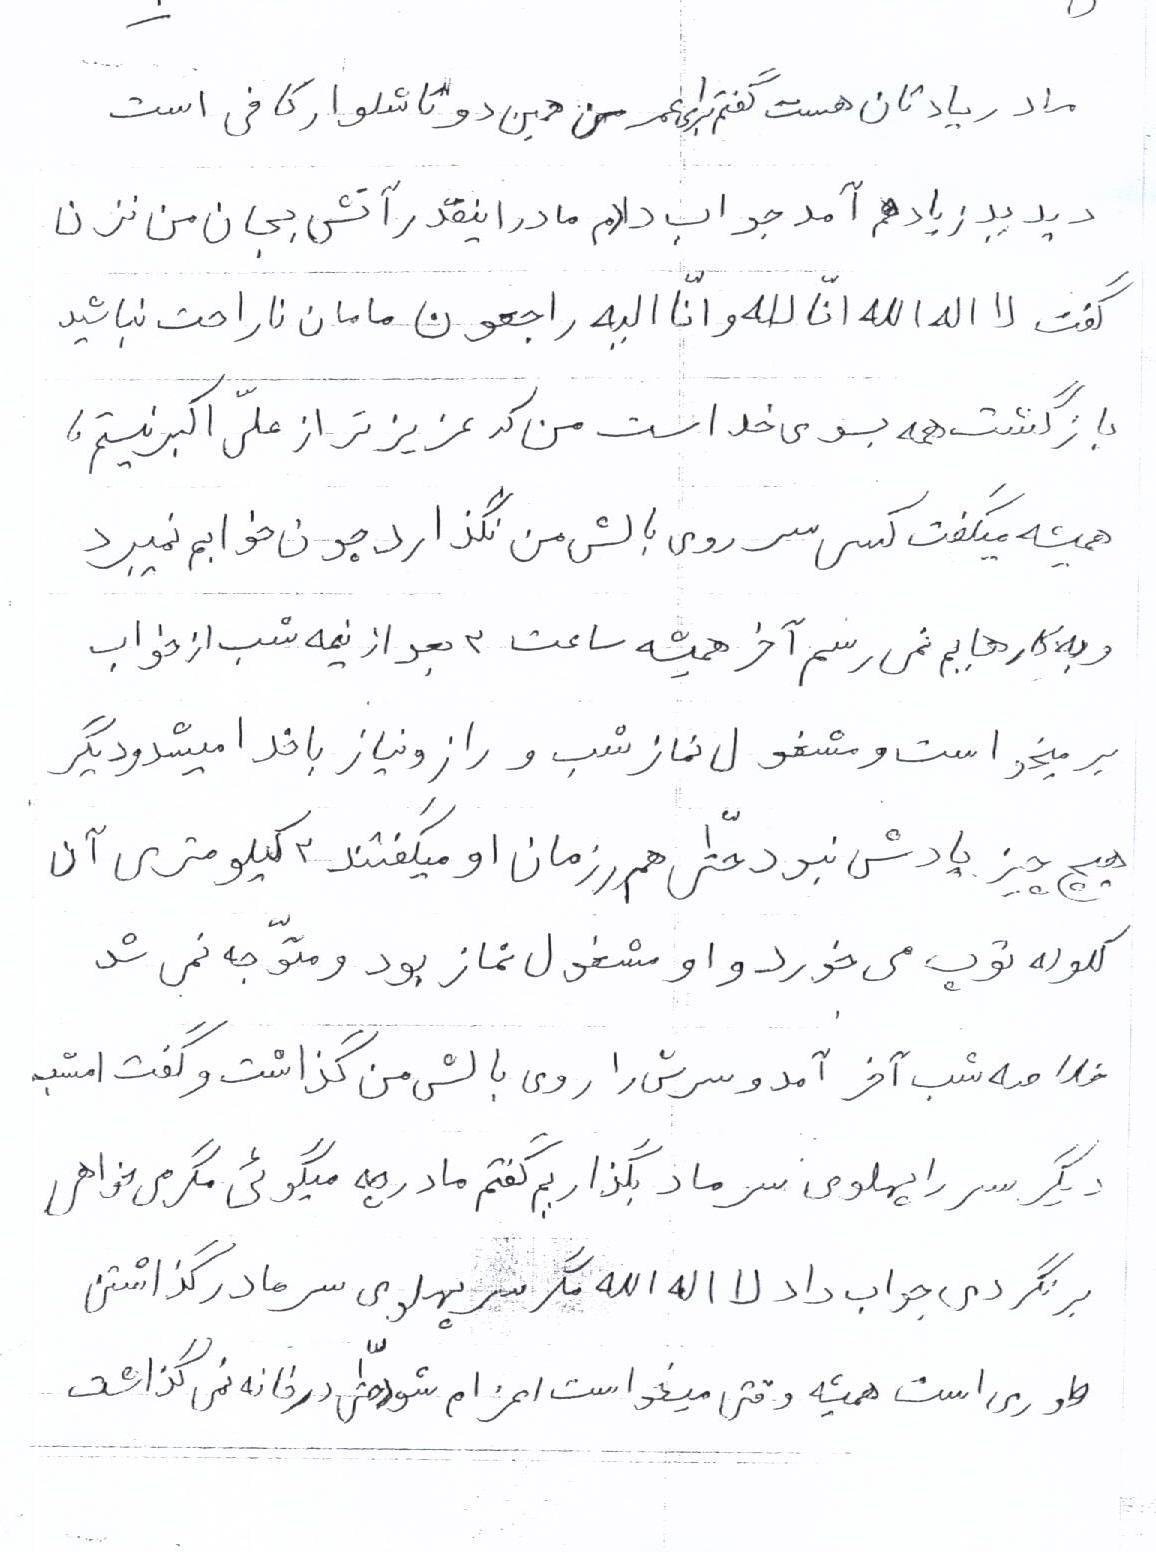 مادر یادتان هست گفتم برای عمر من همین دو تا شلوار کافی است
دیدید زیاد هم آمد جواب دادم مادر اینقدر آتش بجان من نزن
گفت لا اله الا الله انّا لله و انّا الیه راجعون مامان ناراحت نباشید
بازگشت همه بسوی خداست من که عزیزتر از علیّ اکبر نیستم،
همیشه میگفت کسی سر روی بالش من نگذارد چون خوابم نمیبرد
و به کارهایم نمی رسم آخر همیشه ساعت ۲ بعد از نیمه شب از خواب
بر میخواست و مشغول نماز شب و راز و نیاز با خدا میشد و دیگر
هیچ چیز یادش نبود حتّی هم رزمان او میگفتند ۲ کیلومتری آن
گلوله توپ می خورد و او مشغول نماز بود و متوّجه نمی شد
خلاصه شب آخر آمد و سرش را روی بالش من گذاشت و گفت امشب
دیگر سر را پهلوی سر ماد بگذاریم گفتم مادر چه میگوئی مگر می خواهی
برنگردی جواب داد لا اله الا الله مگر سر پهلوی سر مادر گذاشتن
طوری است همیشه وقتی میخواست اعزام شود حتّی در خانه نمی گذاشت